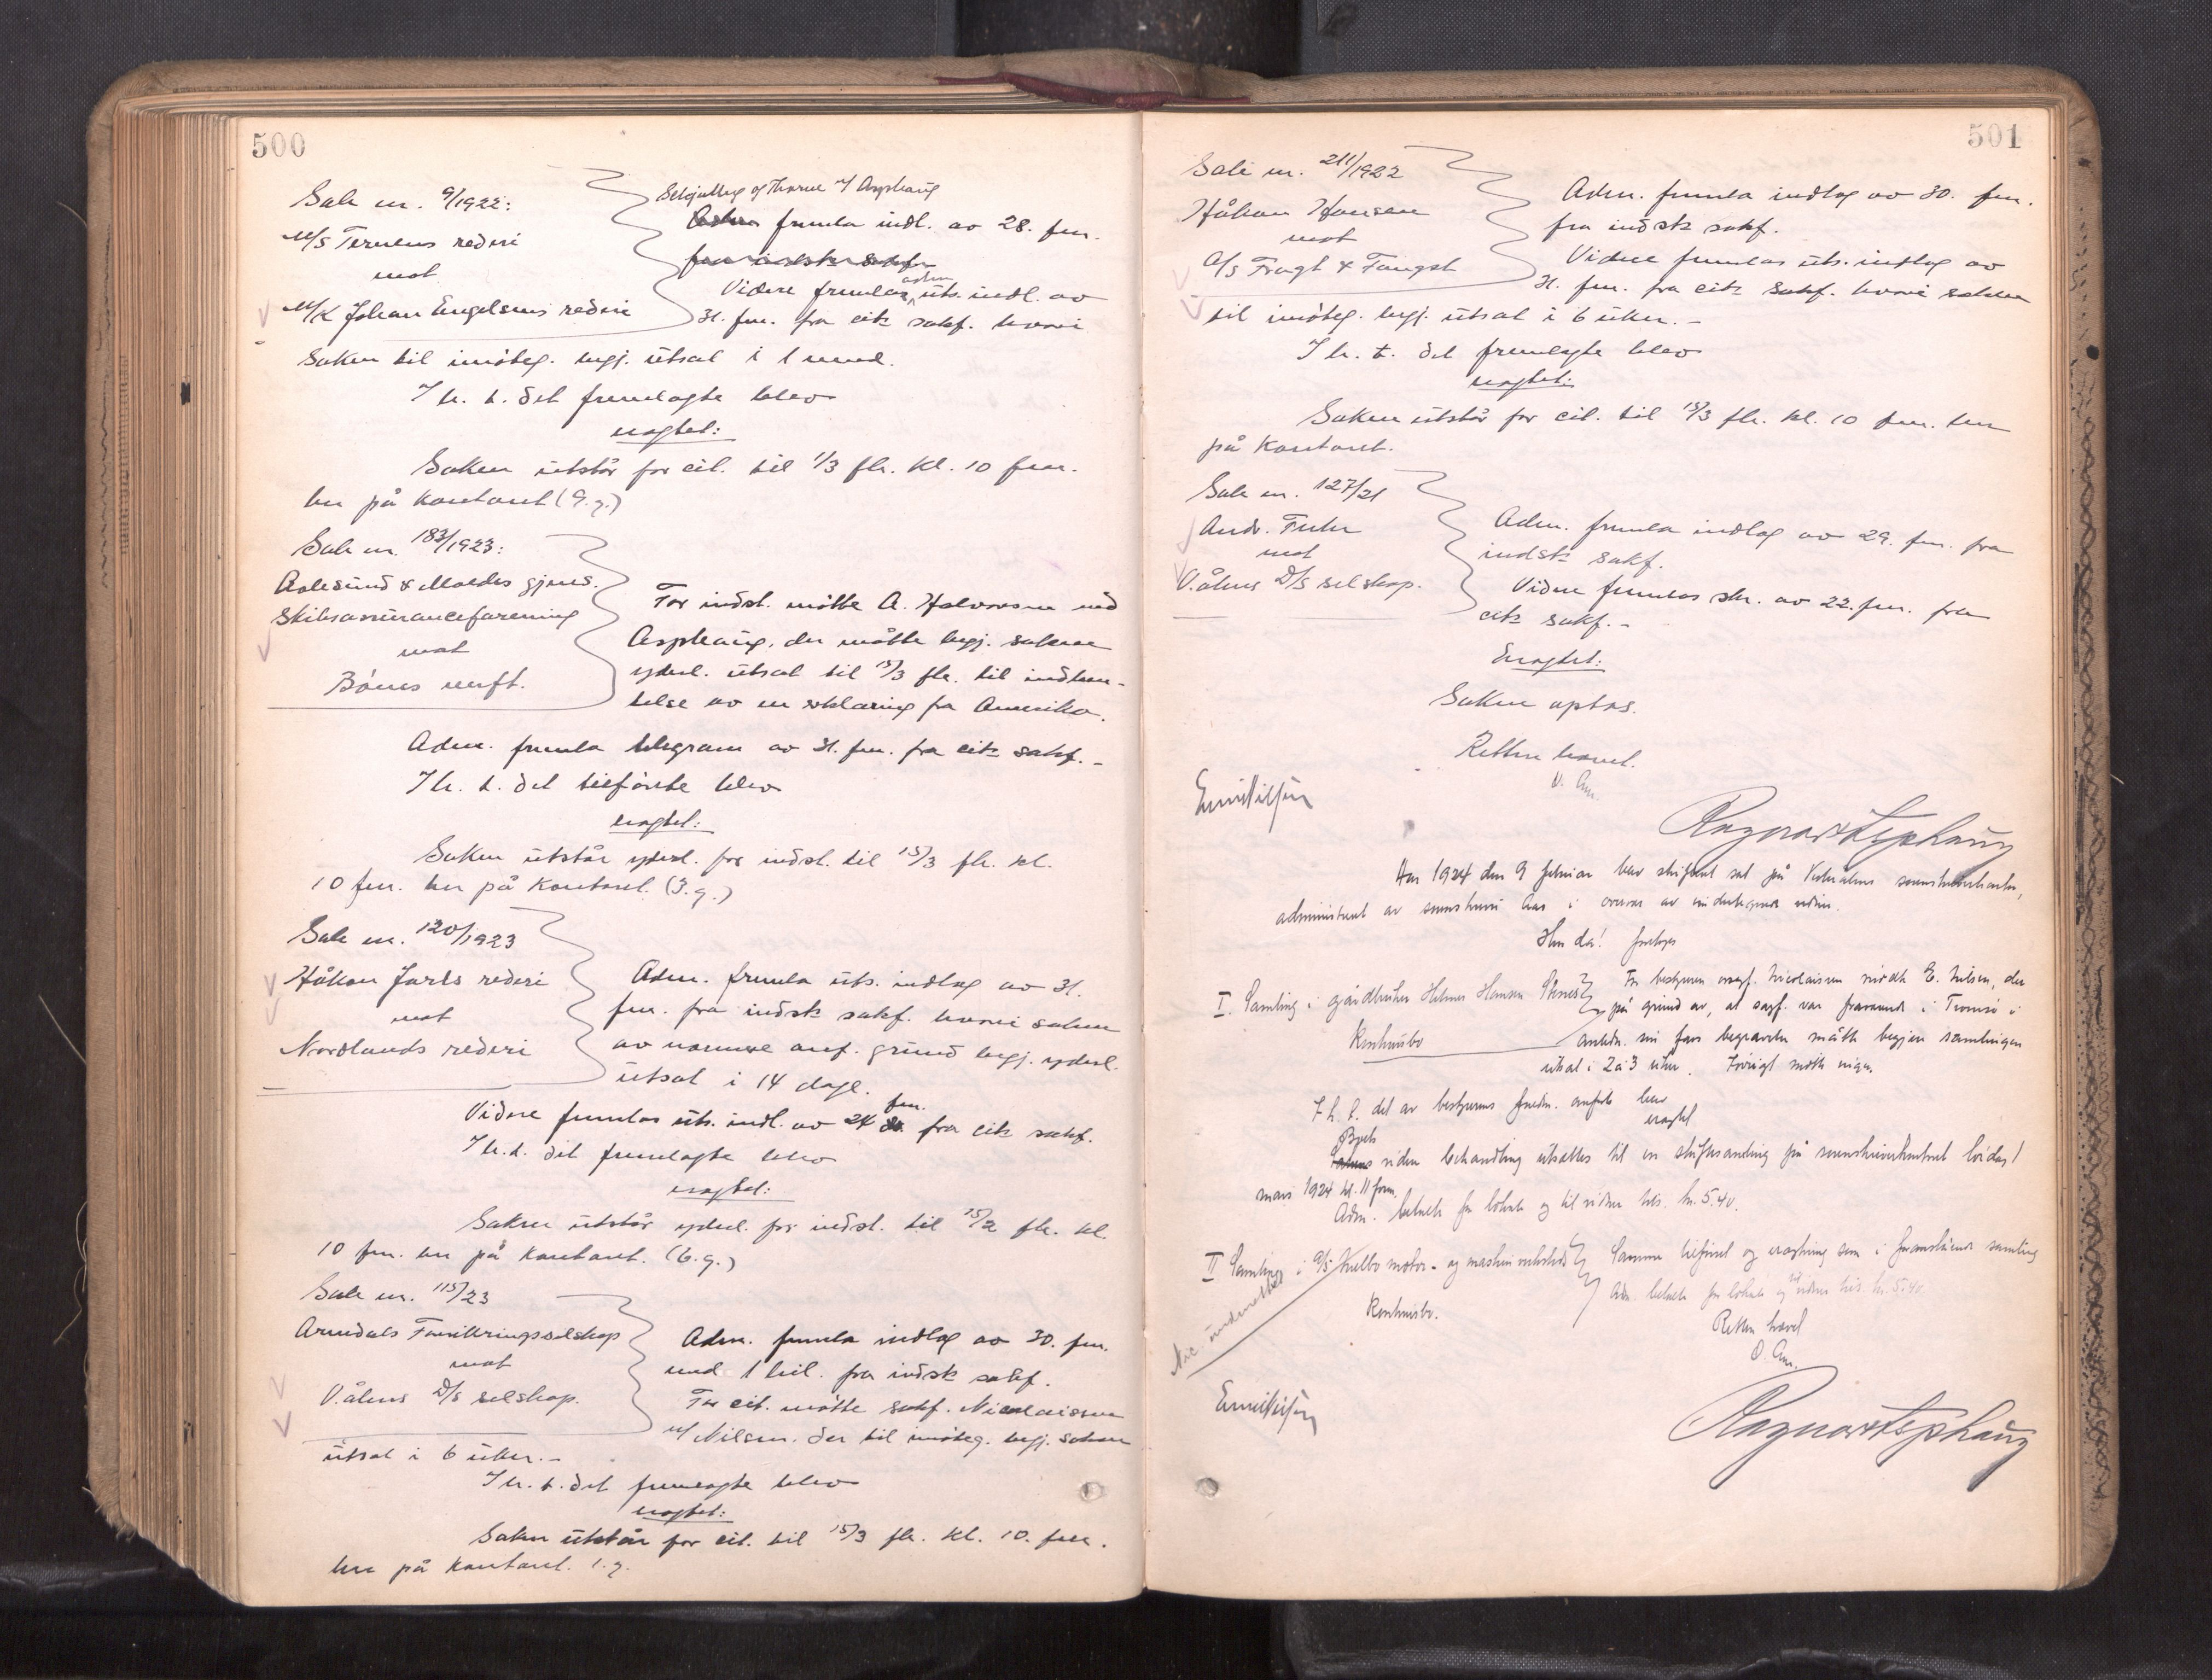 500
Sak nr. 9/1922:
M/S Ternens rederi
mot
M/K Johan Engelsens rederi
og Thorne v/ Asphaug
fremla indl. av 28. fm.
Videre fremlas uts. indl. av
31. fm. fra citk sakf. hvori
saken til imøteg. begj. utsat i 1 mnd.
I h. t. det fremlagte blev
eragtet:
Saken utstår for cit. til 1/3 fk. kl. 10 fm.
her på kontoret (9. g.)
Sak nr. 183/1923:
Aalesund & Moldes gjens.
skibsassuranceforening
mot
Bönes verft.
For indst. møtte A. Halvorsen ved
Asphaug, der møtte begj. saken
yderl. utsat til 15/3 fk. til indhen-
telse av en erklæring fra Amerika.
Adm. fremla telegram av 31. fm. fra citk sakf. -
I h. t. det tilførte blev
eragtet:
Saken utstår yderl. for indst. til 15/3 fk. kl.
10 fm. her på kontoret. (3. g.)
Sak nr. 120/1923
Håkon Jarls rederi
mot
Nordlands rederi
Adm. fremla uts. indlæg av 31.
fm. fra indstk sakf. hvori saken
av nærmere anf. grund begj. yderl.
utsat i 14 dage.
Videre fremlas uts. indl. av 24 fm. fra citk sakf.
I h. t. det fremlagte blev
eragtet:
Saken utstår yderl. for indst. til 15/2 fk. kl.
10 fm. her på kontoret. (6. g.)
Sak nr. 115/23
Arendals Forsikringsselskap
mot
Vålens D/S selskap.
Adm. fremla indlæg av 30. fm.
med 1 bil. fra indstk sakf.
For cit. møtte sakf. Nicolaisen
v/ Nilsen, der til imøteg. begj. saken
utsat i 6 uker. -
I h. t. det fremlagte blev
eragtet:
Saken utstår for cit. til 15/3 fk. kl. 10. fm.
her på kontoret. 1. g.
501
Sak nr. 211/1922
Håkon Hansen
mot
A/S Fragt & Fangst
Adm. fremla indlæg av 30. fm.
fra indstk sakf.
Videre fremlas uts. indlæg av
31. fm. fra citk sakf. hvori saken
til imøteg. begj. utsat i 6 uker. -
I h. t. det fremlagte blev
eragtet:
Saken utstår for cit. til 15/3 fk. kl. 10 fm. her
på kontoret.
Sak nr. 127/21
Andr.
mot
Vålens D/S selskap.
Adm. fremla indlæg av 29. fm. fra
indstk sakf.
Videre fremlas skr. av 22. fm. fra
citk sakf. -
Eragtet:
Saken optas.
Retten hævet.
O. Aas.
Emil Nilsen
Ragnar Asphaug
Aar 1924 den 9 februar blev skifteret sat på Vesterålens sorenskriverkontor,
administreret av sorenskriver Aas i overvær av undertegnede vidne.
Hvor da! foretoges
I. Samling i gårdbruker Helmer Hansen
Konkursbo
For bestyreren overf. Nicolaisen møtte E. Nilsen, der
på grund av, at sagf. var fraværende i Tromsø i
anledn. sin fars begravelse måtte begjære samlingen
utsat i 2 à 3 uker. Forøvrigt møtte ingen.
I h. t. det av bestyrerens fuldm. anførte blev
eragtet
Boets
videre behandling utsættes til en skiftesamling på sorenskriverkontoret lørdag 1
mars 1924 kl. 11 form.
Adm. betalte for lokale og til vidner tils. kr. 5.40.
II Samling i A/S Melbo motor- og maskinverksted
Konkursbo.
Samme tilførsel og eragtning som i foranstående samling
Adm. betalte for lokale og til vidner tils. kr. 5.40.
Retten hævet
O. Aas.
Emil Nilsen
Ragnar Asphaug